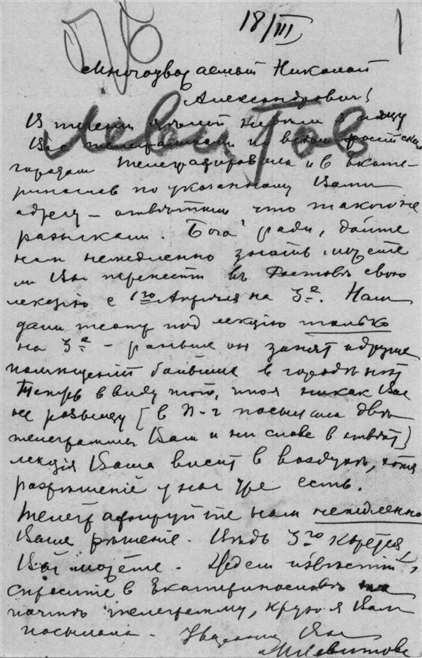 18/III
Многоуважаемый Николай
Александрович!
Левитов
В течении целой недели я ищу
Вас телеграммами по всем
городам телеграфировала и в Екате-
ринослав по указанному Вами
адресу – ответили что такого не
разыскали. Бога ради, дайте
нам немедленно знать можете
ли Вы перенести в Ростов свою
лекцию с 1го Апреля на 3е. Нам
дали театр под лекцию только
на 3е – раньше он занят а другие
помещений больше в городе нет
Теперь в виду того, что я никак Вас
не разыщу [в П-г послала две
телеграммы Вам и ни слова в ответ]
лекция Ваша висит в воздухе, хотя
разрешение у нас уже есть.
Телеграфируйте нам немедленно
Ваше решение. Ведь 3го
Вы можете. Ждем известий,
спросите в Екатеринославе на
почте телеграмму, которую я Вам
посылала. Уважающая Вас
М Левитова